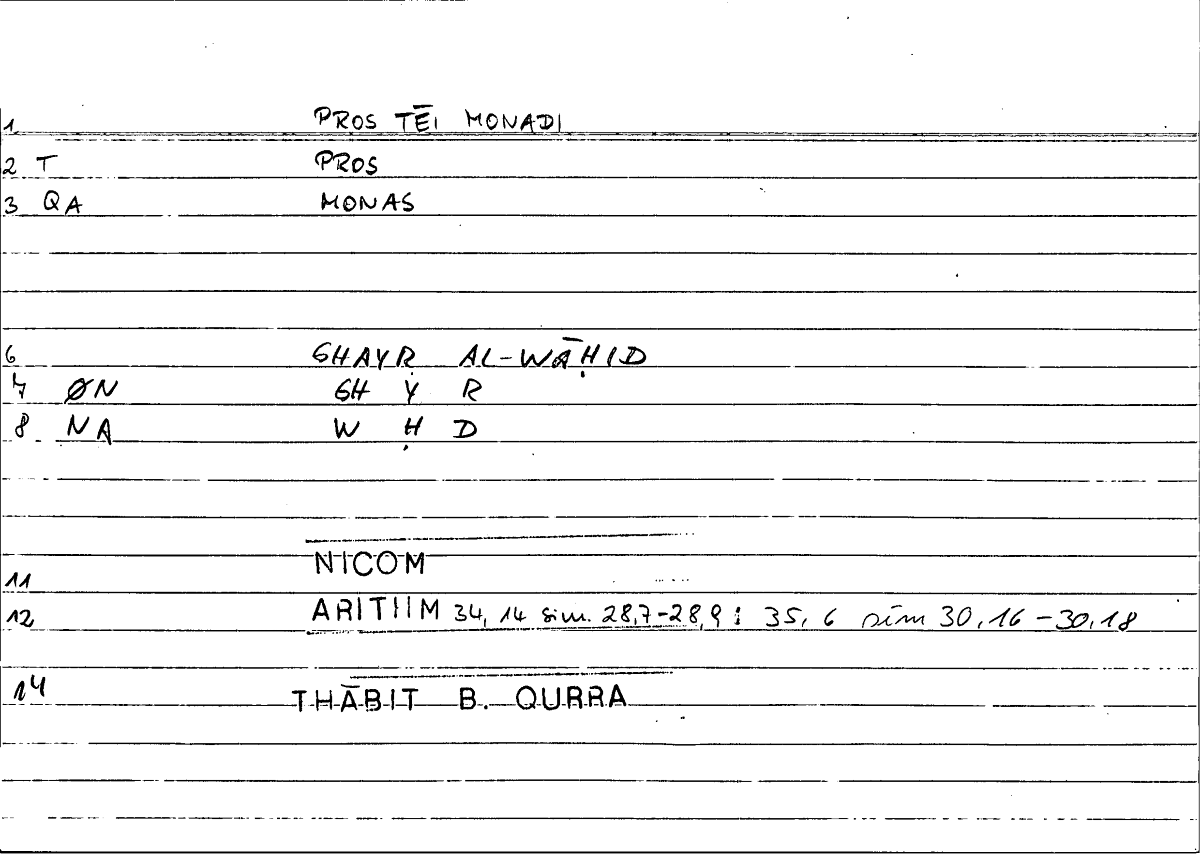 1 PROS TĒI MONADI
2 T PROS
3 QA MONAS
6 GHAYR AL-WĀḤID
7 ØN GH Y R
8 NA W Ḥ D
11 NICOM
12 ARITIIM 34, 14 sim. 28,7-28,9 ; 35, 6 sim 30,16 - 30,18
14 THĀBIT B. QURRA